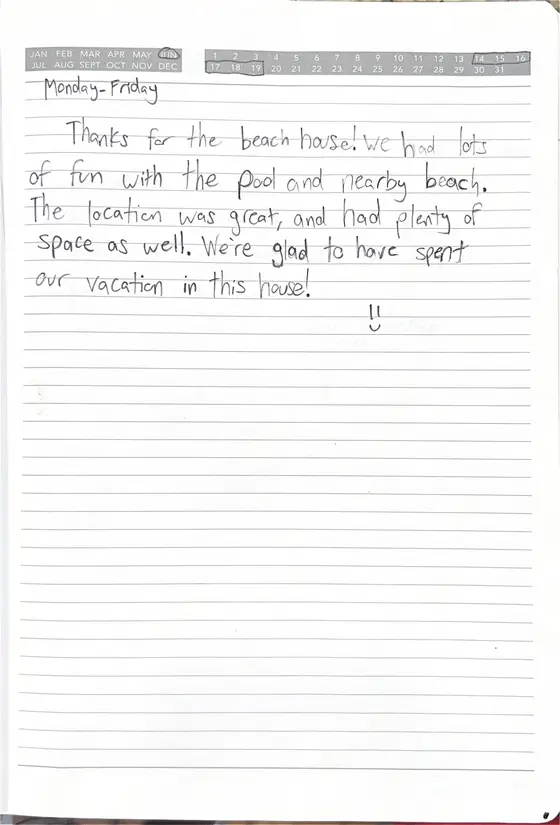 JAN FEB MAR APR MAY JUN
JUL AUG SEPT OCT NOV DEC
1 2 3 4 5 6 7 8 9 10 11 12 13 14 15 16
17 18 19 20 21 22 23 24 25 26 27 28 29 30 31
Monday-Friday
Thanks for the beach house! We had lots
of fun with the pool and nearby beach.
The location was great, and had plenty of
space as well. We're glad to have spent
our vacation in this house!